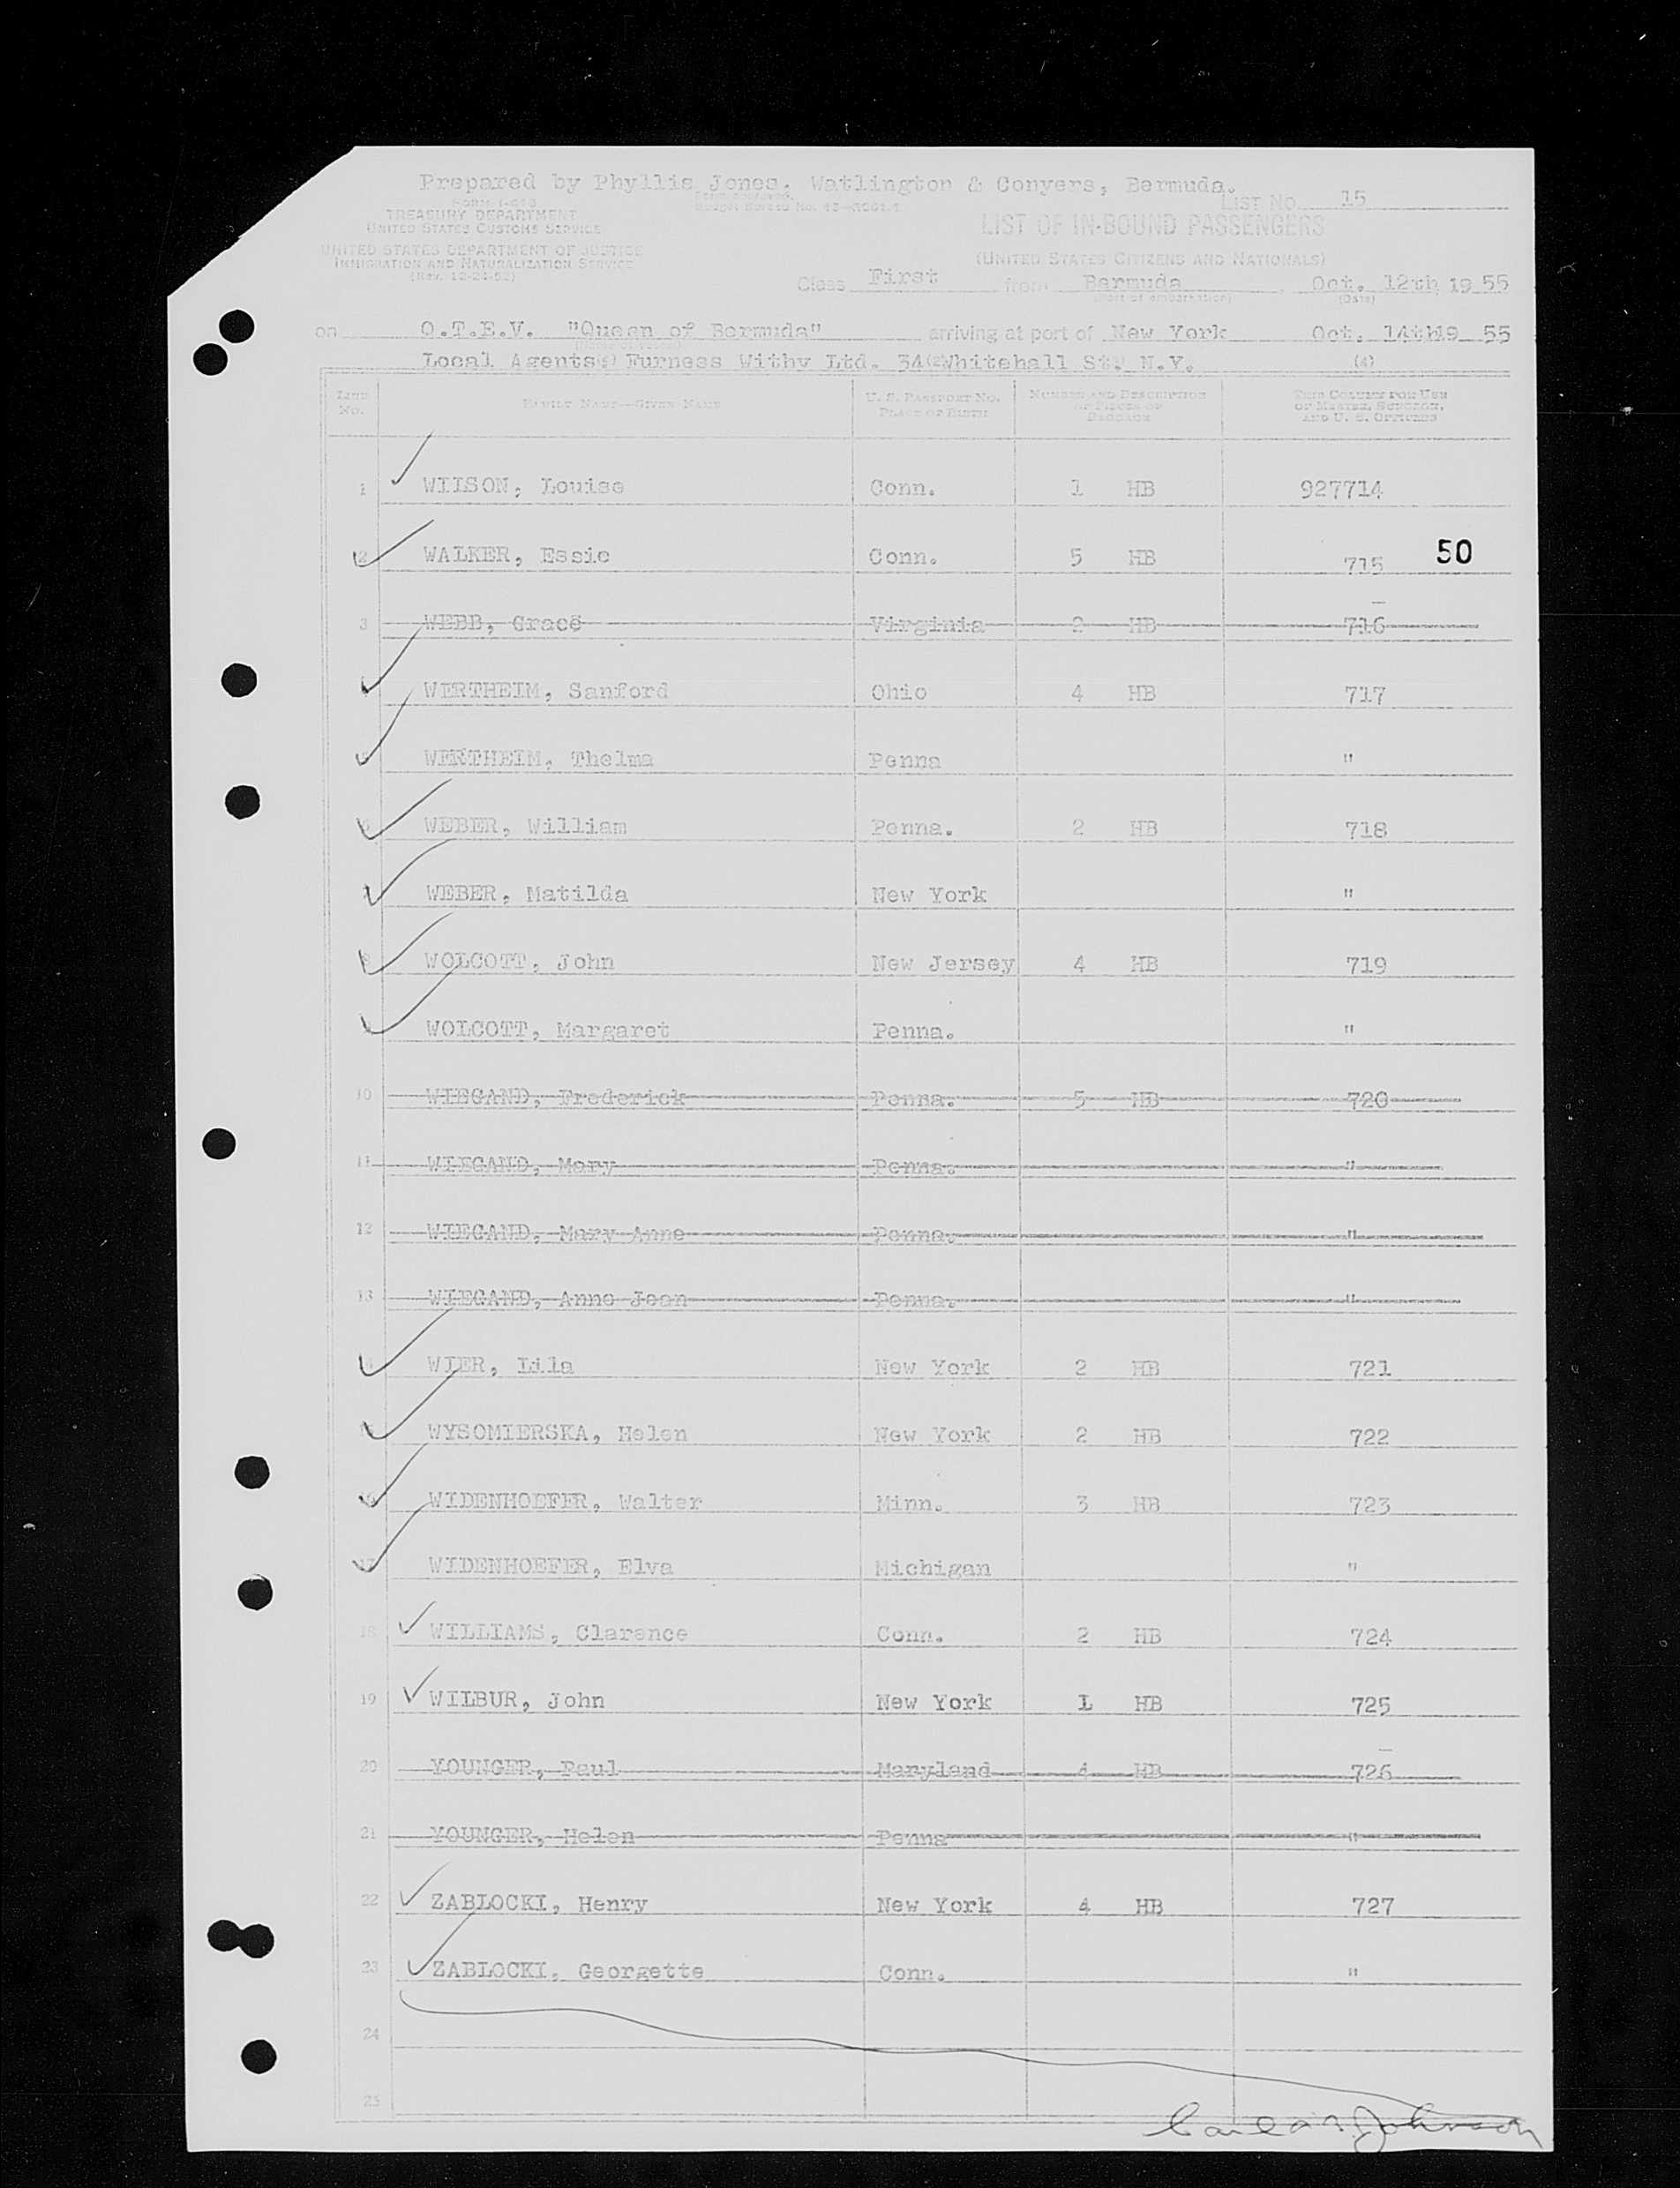 Prepared by Phyllis Jones, Watlington & Conyers, Bermuda.
FORM I-418
TREASURY DEPARTMENT
UNITED STATES CUSTOMS SERVICE
UNITED STATES DEPARTMENT OF JUSTICE
IMMIGRATION AND NATURALIZATION SERVICE
(Rev. 12-24-52)
Budget Bureau No.
LIST NO. 15
LIST OF IN-BOUND PASSENGERS
(UNITED STATES CITIZENS AND NATIONALS)
Class First from Bermuda , Oct. 12th, 1955
(Port of embarkation) (Date)
on Q.T.E.V. "Queen of Bermuda" arriving at port of New York Oct. 14th 1955
Local Agents: Furness Withy Ltd. 34 Whitehall St. N.Y. (4)
LINE No. FAMILY NAME—GIVEN NAME U. S. PASSPORT NO. PLACE OF BIRTH NUMBER AND DESCRIPTION OF PIECES OF BAGGAGE THIS COLUMN FOR USE OF MASTER, SURGEON, AND U. S. OFFICERS
1 WILSON, Louise Conn. 1 HB 927714
2 WALKER, Essie Conn. 5 HB 715 50
3 WEBB, Grace Virginia 2 HB 716
WERTHEIM, Sanford Ohio 4 HB 717
WERTHEIM, Thelma Penna "
WEBER, William Penna. 2 HB 718
WEBER, Matilda New York "
WOLCOTT, John New Jersey 4 HB 719
WOLCOTT, Margaret Penna. "
10 WIEGAND, Frederick Penna. 5 HB 720
11 WIEGAND, Mary Penna. "
12 WIEGAND, Mary Anne Penna. "
13 WIEGAND, Anne Jean Penna. "
WIER, Lila New York 2 HB 721
WYSOMIERSKA, Helen New York 2 HB 722
16 WIDENHOEFER, Walter Minn. 3 HB 723
17 WIDENHOEFER, Elva Michigan "
18 WILLIAMS, Clarence Conn. 2 HB 724
19 WILBUR, John New York 1 HB 725
20 YOUNGER, Paul Maryland 4 HB 726
21 YOUNGER, Helen Penna "
22 ZABLOCKI, Henry New York 4 HB 727
23 ZABLOCKI, Georgette Conn. "
24
25
Johnson